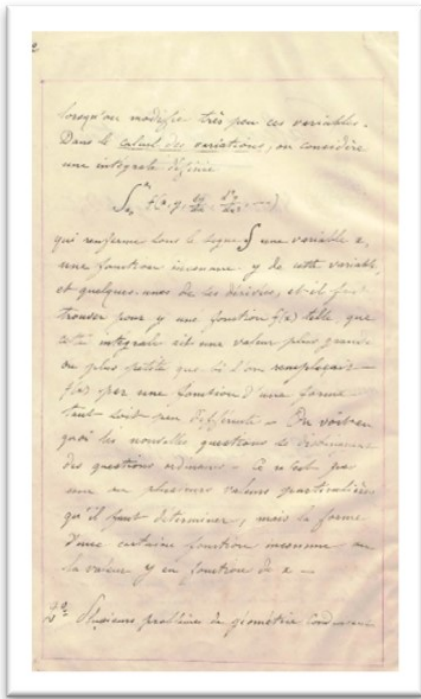 lorsqu'on modifie très peu ces variables.
Dans le calcul des variations, on considère
une intégrale définie
∫ f(x, y, dy/dx, d²y/dx², ...)
qui renferme sous le signe ∫ une variable x,
une fonction inconnue y de cette variable,
et quelques-unes de ses dérivées, et il faut
trouver pour y une fonction f(x) telle, que
cette intégrale ait une valeur plus grande
ou plus petite que si l'on remplaçait
f(x) par une fonction d'une forme
tant soit peu différente - On voit en
quoi les nouvelles questions se
des questions ordinaires - Ce n'est pas
une ou plusieurs valeurs particulières
qu'il faut déterminer, mais la forme
d'une certaine fonction inconnue ou
la valeur y en fonction de x -
2° Plusieurs problèmes de géométrie